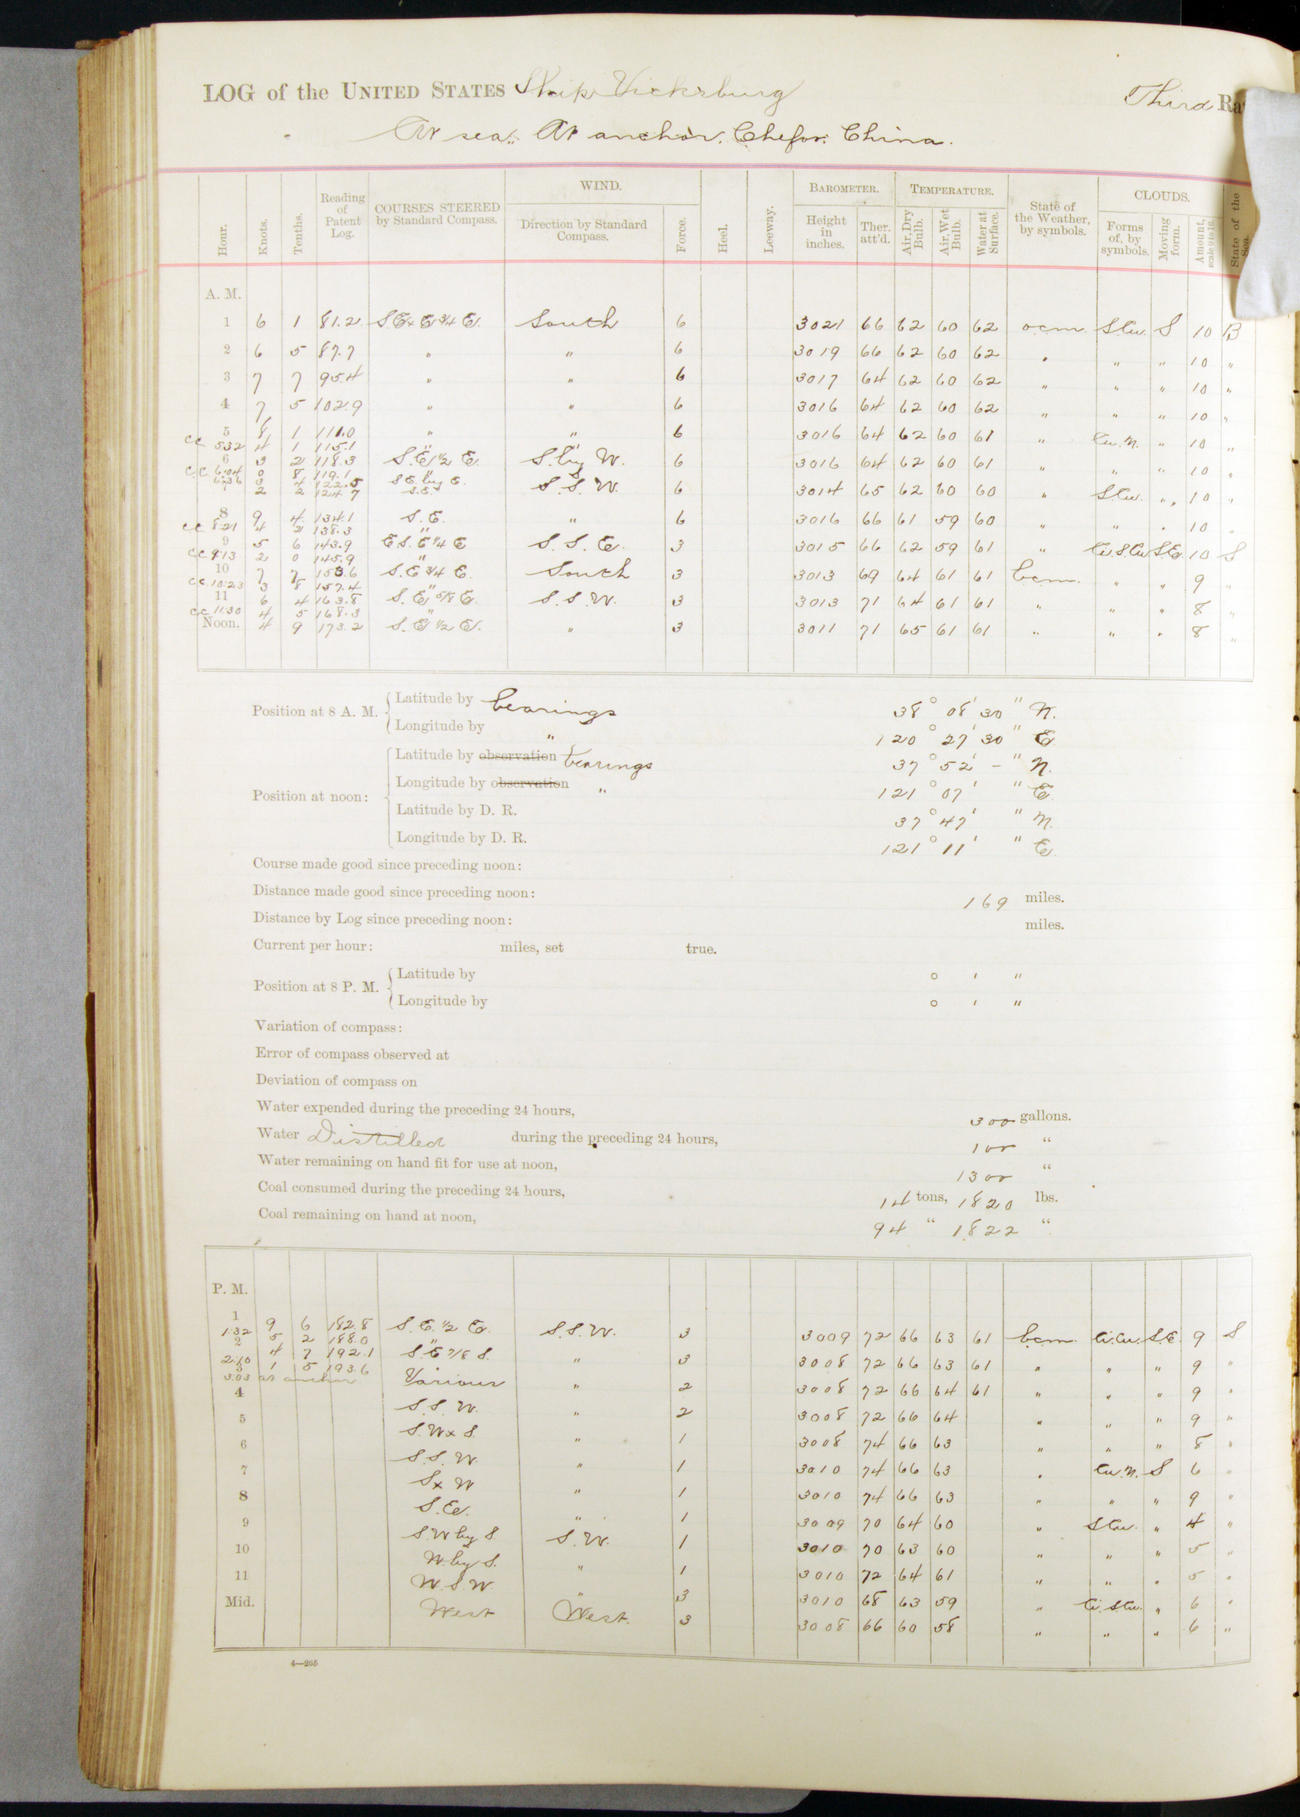 LOG of the UNITED STATES Ship Vicksburg Third Ra
At sea, At anchor, Chefoo, China.
Hour. Knots. Tenths. Reading of Patent Log. COURSES STEERED by Standard Compass. WIND. Direction by Standard Compass. Force. Heel. Leeway. BAROMETER. Height in inches. Ther. att'd. TEMPERATURE. Air, Dry Bulb. Air, Wet Bulb. Water at Surface. State of the Weather, by symbols. CLOUDS. Forms of, by symbols. Moving form. Amount, scale 0 to 10. State of the Sea.
A. M.
1 6 1 81.2 S.ExE 3/4 E. South 6 3021 66 62 60 62 ocm S.Cu. S 10 B
2 6 5 87.7 " " 6 3019 66 62 60 62 " " " 10 "
3 7 7 95.4 " " 6 3017 64 62 60 62 " " " 10 "
4 7 5 102.9 " " 6 3016 64 62 60 62 " " " 10 "
5 8 1 111.0 " " 6 3016 64 62 60 61 " Cu.N. " 10 "
cc 5:32 4 1 115.1 "
6 3 2 118.3 S.E 1/2 E. S. by W. 6 3016 64 62 60 61 " " " 10 "
cc 6:04 0 8 119.1 "
6:36 3 4 122.5 S.E. by E.
7 2 2 124.7 S.E. S.S.W. 6 3014 65 62 60 60 " S.Cu. " 10 "
8 9 4 134.1 S.E. " 6 3016 66 61 59 60 " " " 10 "
cc 8:21 4 2 138.3 "
9 5 6 143.9 E.S.E 1/4 E S.S.E. 3 3015 66 62 59 61 " Cu.S.Cu. S.E. 10 S
cc 9:13 2 0 145.9 "
10 7 7 153.6 S.E 3/4 E. South 3 3013 69 64 61 61 bcm. " " 9 "
cc 10:23 3 8 157.4 "
11 6 4 163.8 S.E 5/8 E. S.S.W. 3 3013 71 64 61 61 " " " 8 "
cc 11:30 4 5 168.3 "
Noon. 4 9 173.2 S.E 1/2 E. " 3 3011 71 65 61 61 " " " 8 "
Position at 8 A. M. Latitude by bearings 38° 08' 30" N.
Longitude by " 120° 27' 30" E
Position at noon: Latitude by observation bearings 37° 52' - " N.
Longitude by observation " 121° 07' " E.
Latitude by D. R. 37° 47' " N.
Longitude by D. R. 121° 11' " E.
Course made good since preceding noon:
Distance made good since preceding noon: 169 miles.
Distance by Log since preceding noon: miles.
Current per hour: miles, set true.
Position at 8 P. M. Latitude by ° ' "
Longitude by ° ' "
Variation of compass:
Error of compass observed at
Deviation of compass on
Water expended during the preceding 24 hours, 300 gallons.
Water Distilled during the preceding 24 hours, 100 "
Water remaining on hand fit for use at noon, 1300 "
Coal consumed during the preceding 24 hours, 14 tons, 1820 lbs.
Coal remaining on hand at noon, 94 " 1822 "
P. M.
1 9 6 182.8 S.E. 1/2 E. S.S.W. 3 3009 72 66 63 61 bcm. Ci.Cu. S.E. 9 S
1:32 5 2 188.0 "
2 4 7 192.1 S.E 7/8 S. " 3 3008 72 66 63 61 " " " 9 "
2:10 1 5 193.6
3 Various " 2 3008 72 66 64 61 " " " 9 "
3:03 at anchor
4 S.S.W. " 2 3008 72 66 64 " " " 9 "
5 S.WxS. " 1 3008 74 66 63 " " " 8 "
6 S.S.W. " 1 3010 74 66 63 " Cu.N. S 6 "
7 SxW " 1 3010 74 66 63 " " " 9 "
8 S.E. " 1 3009 70 64 60 " S.Cu. " 4 "
9 S.W by S. S.W. 1 3010 70 63 60 " " " 5 "
10 W. by S. " 1 3010 72 64 61 " " " 5 "
11 W.S.W. " 3 3010 68 63 59 " Ci.S.Cu. " 6 "
Mid. West West. 3 3008 66 60 58 " " " 6 "
4—265